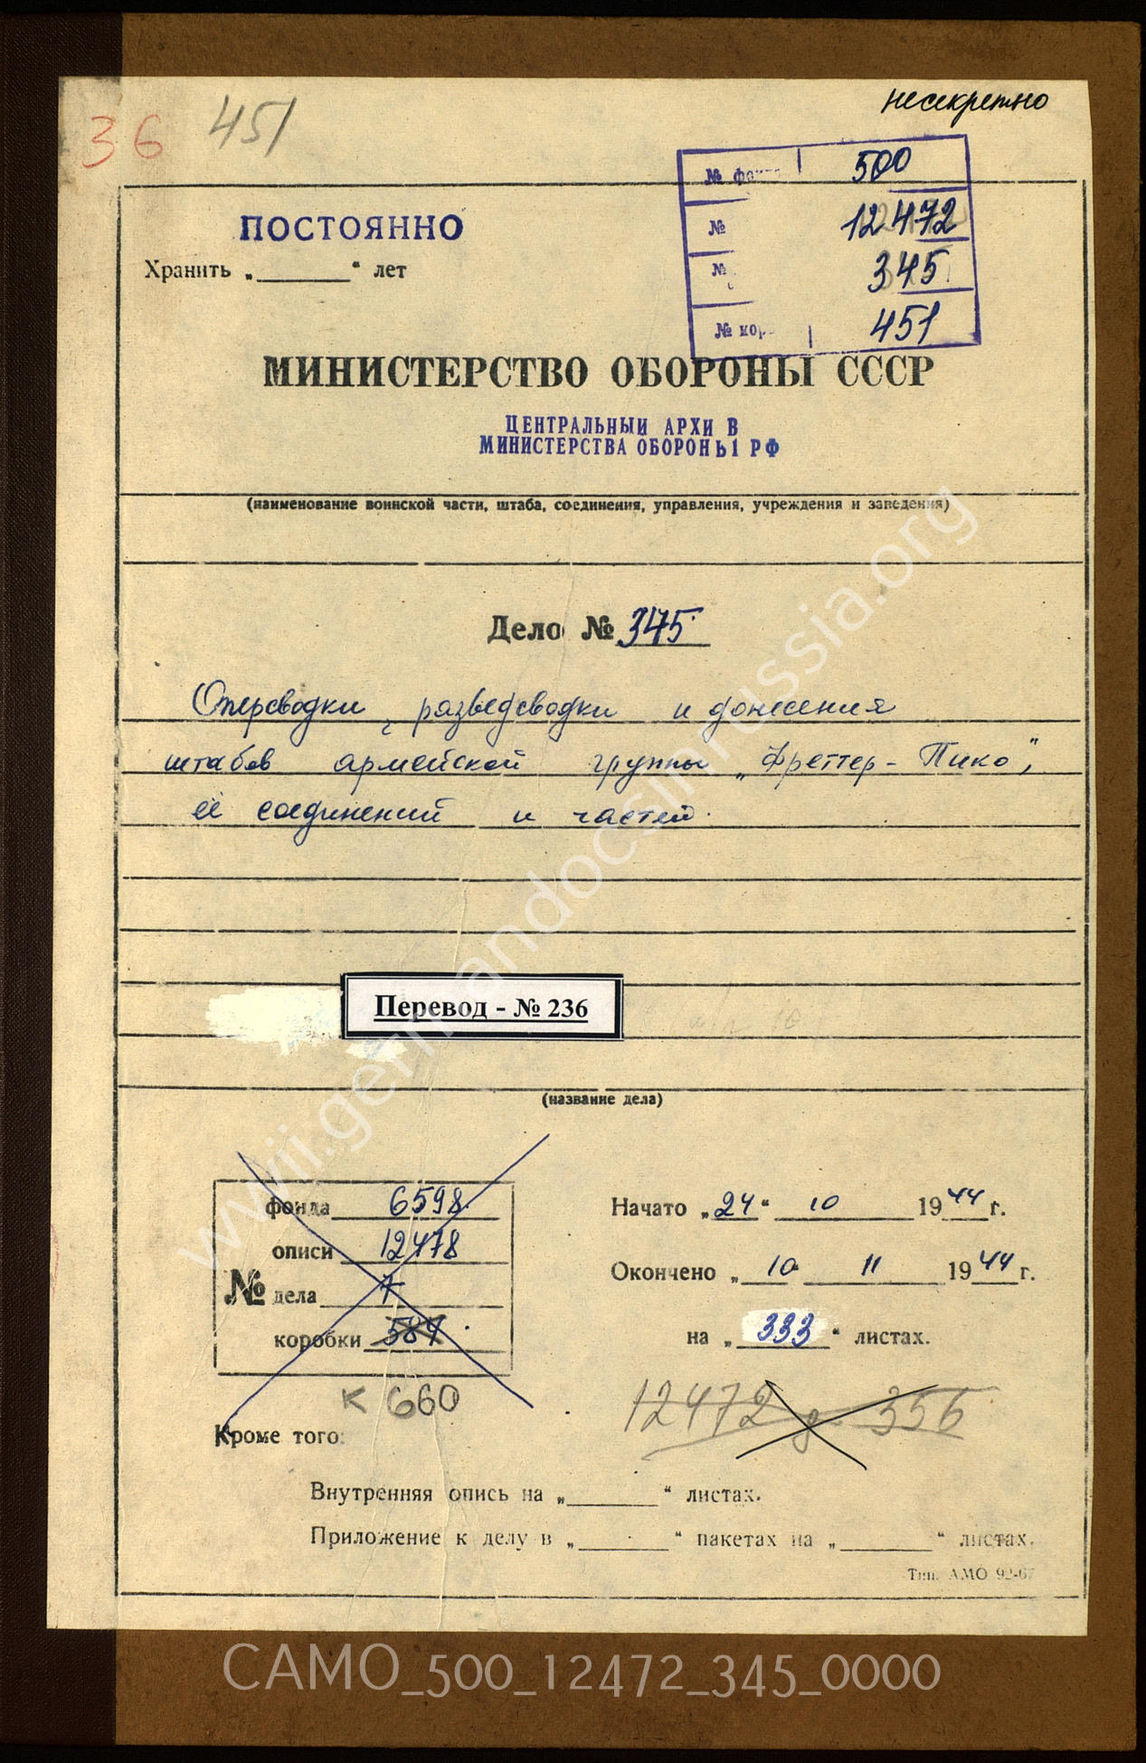 несекретно
36 451
№ фонда 500
№ 12472
№ 345
№ кор. 451
ПОСТОЯННО
Хранить „ “ лет
МИНИСТЕРСТВО ОБОРОНЫ СССР
ЦЕНТРАЛЬНЫЙ АРХИВ
МИНИСТЕРСТВА ОБОРОНЫ РФ
(наименование воинской части, штаба, соединения, управления, учреждения и заведения)
Дело № 345
Оперсводки, разведсводки и донесения
штабов армейской группы „Фреттер-Пико“,
её соединений и частей.
Перевод - № 236
(название дела)
фонда 6598
описи 12478
№ дела 7
коробки 587
к 660
Начато „24“ 10 1944 г.
Окончено „10 11 1944 г.
на „333“ листах.
12472 д. 356
Кроме того:
Внутренняя опись на „ “ листах.
Приложение к делу в „ “ пакетах на „ “ листах.
Тип. АМО 92-67
wwii.germandocsinrussia.org
CAMO_500_12472_345_0000